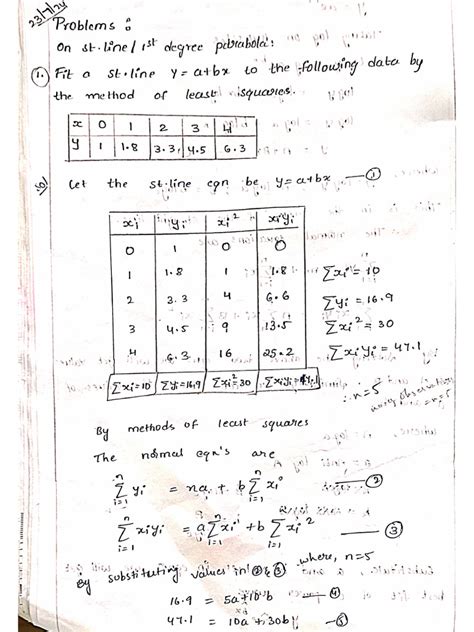 23/7/24
Problems :
On st.line / 1st degree petrabola:
1. Fit a st.line y = a+bx to the following data by
the method of least squares.
x 0 1 2 3 4
y 1 1.8 3.3 4.5 6.3
Let the st.line eqn be y=a+bx — ①
xi yi xi² xiyi
0 1 0 0
1 1.8 1 1.8
2 3.3 4 6.6
3 4.5 9 13.5
4 6.3 16 25.2
Σxi=10 Σyi=16.9 Σxi²=30 Σxiyi=47.1
Σxi = 10
Σyi = 16.9
Σxi² = 30
Σxiyi = 47.1
∴ n=5
n=5
By methods of least squares
The normal eqn's are
Σ(i=1 to n) yi = na + b Σ(i=1 to n) xi — ②
Σ(i=1 to n) xiyi = a Σ(i=1 to n) xi + b Σ(i=1 to n) xi² — ③
By substituting values in ② & ③ where, n=5
16.9 = 5a+10b — ④
47.1 = 10a + 30b — ⑤